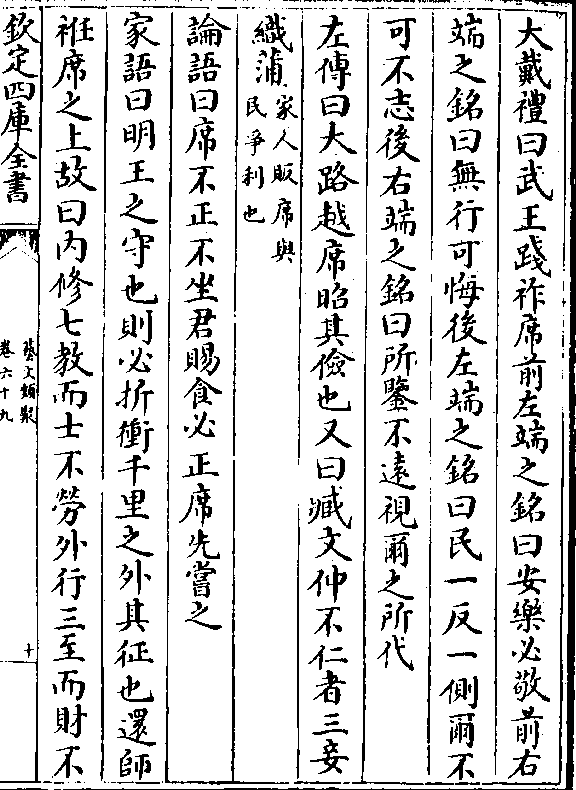 大戴禮曰武王踐祚席前左端之銘曰安樂必敬前右
端之銘曰無行可悔後左端之銘曰民一反一側爾不
可不志後右端之銘曰所鑒不遠視爾之所代
左傳曰大路越席昭其儉也又曰臧文仲不仁者三妾
織蒲家人販席與民爭利也
論語曰席不正不坐君賜食必正席先嘗之
家語曰明王之守也則必折衝千里之外其征也還師
袵席之上故曰内修七教而士不勞外行三至而財不
欽定四庫全書
藝文類聚
卷六十九
十